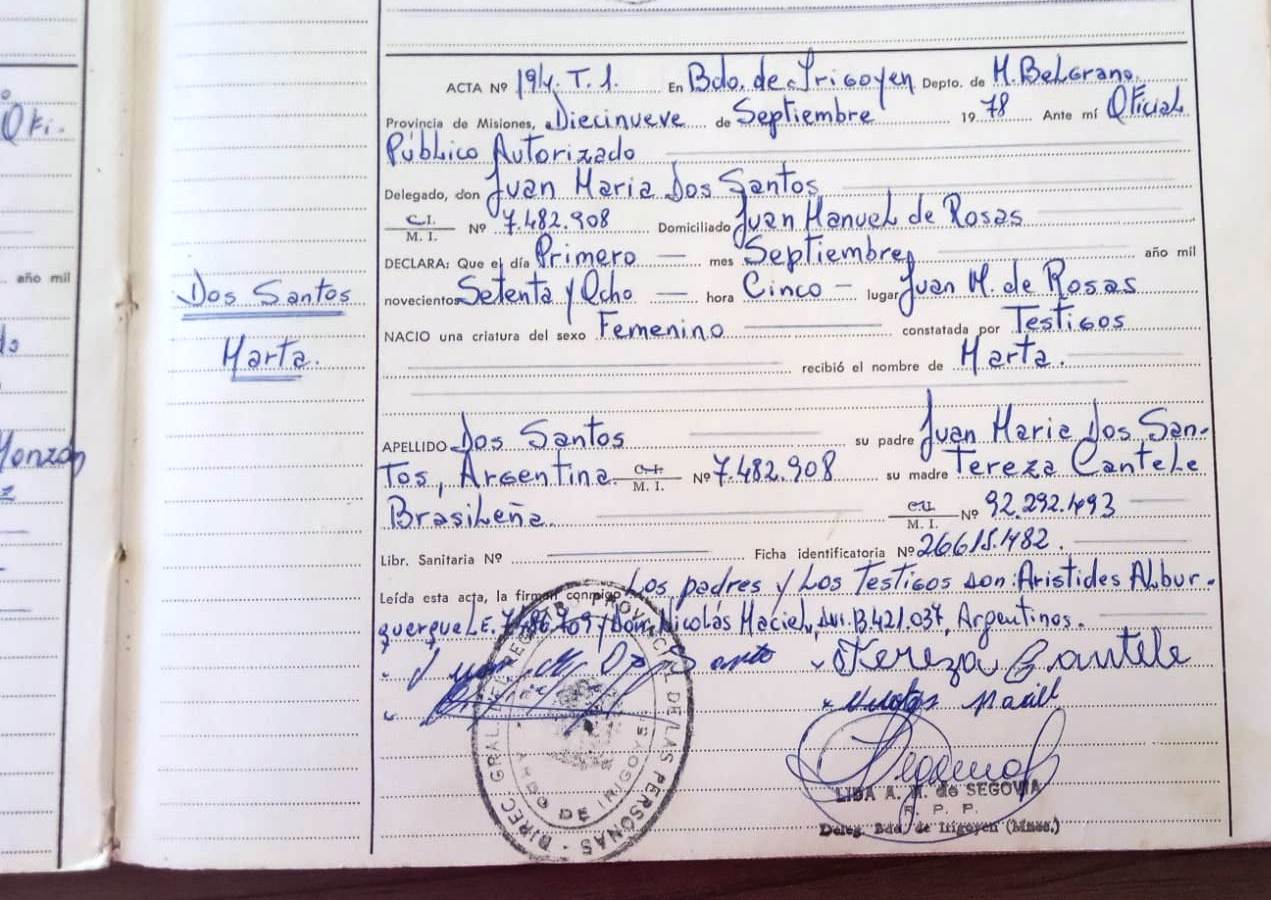 Ofi.
año mil
Monzón
Dos Santos
Marta.
ACTA Nº 194. T. 1. En Bdo. de Irigoyen Depto. de M. Belgrano
Provincia de Misiones, Diecinueve de Septiembre 19 78 Ante mí Oficial
Público Autorizado
Delegado, don Juan Maria Dos Santos
C.I.
M. I. Nº 7.482.908 Domiciliado Juan Manuel de Rosas
DECLARA: Que el día Primero — mes Septiembre, año mil
novecientos Setenta y Ocho — hora Cinco — lugar Juan M. de Rosas
NACIO una criatura del sexo Femenino constatada por Testigos
recibió el nombre de Marta.
APELLIDO Dos Santos su padre Juan Maria Dos San-
tos, Argentina. C.I. M. I. Nº 7.482.908 su madre Tereza Cantele
Brasileña. C.I. M. I. Nº 92.292.493
Libr. Sanitaria Nº Ficha identificatoria Nº 26615.1482.
Leída esta acta, la firman conmigo Los padres y Los Testigos son: Aristides Albur-
querque L.E. y Don Nicolás Maciel, 421.037, Argentinos.
Juan M. Dos Santo Tereza Cantele
DIREC. GRAL. DEL REGISTRO PROVINCIAL DE LAS PERSONAS
DE IRIGOYEN
LIDA A. M. de SEGOVIA
R. P. P.
Deleg. Bdo. de Irigoyen (Mnes.)